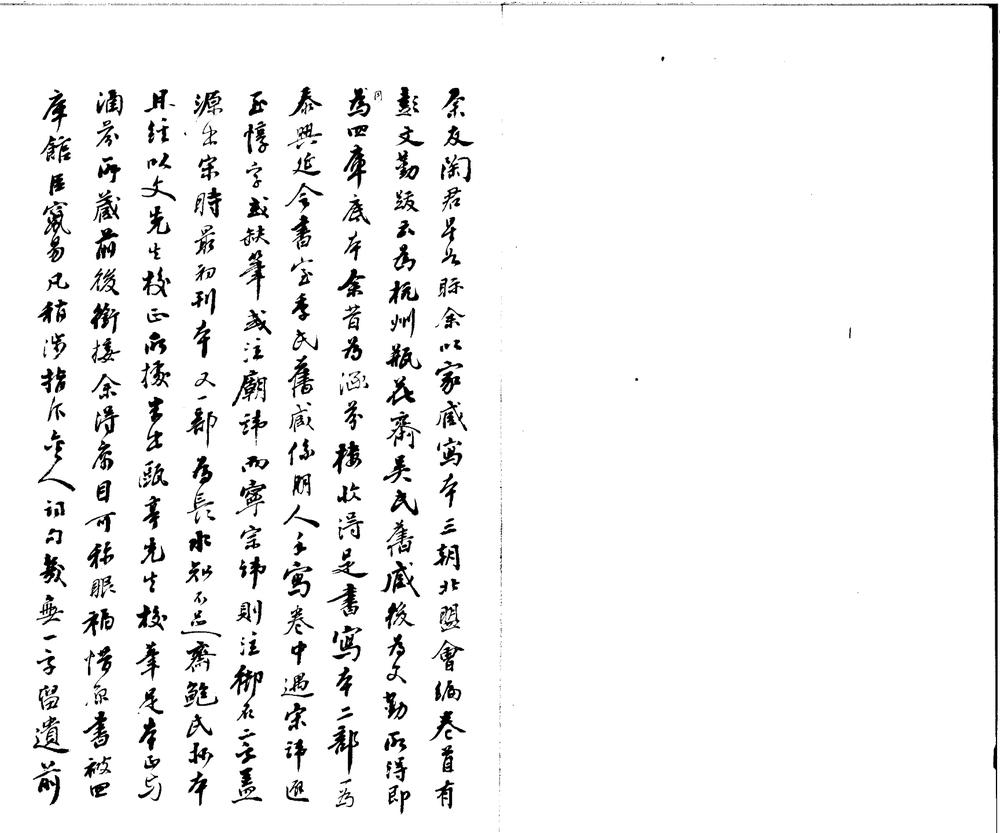 余友陶君星如眎余以家臧寫本三朝北盟會編卷首有
彭文勤跋云為杭州瓶花齋吳氏舊臧後為文勤所得即
為四庫底本余昔為涵芬樓收得是書寫本二部一為
泰興延令書室季氏舊臧係明人手寫卷中遇宋諱迴
至惇字或缺筆或注廟諱而寧宗諱則注御名二字蓋
源出宋時最初刊本又一部為長水知不足齋鮑氏抄本
且經以文先生校正所據出甌亭先生校筆是本正与
涵芬所藏前後銜接余得寓目可稱眼福惜原書被四
庫館臣竄易凡稍涉指斥金人詞句幾無一字留遺前